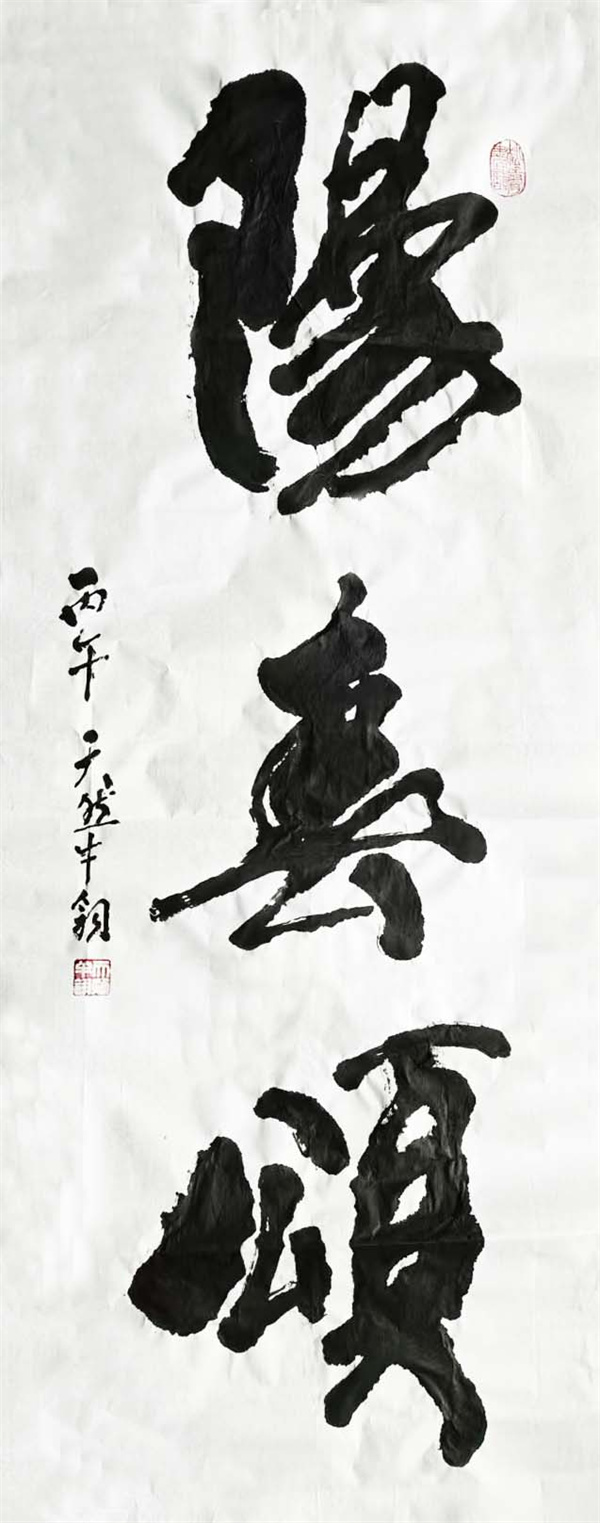 陽春頌
丙午 天然牛翱